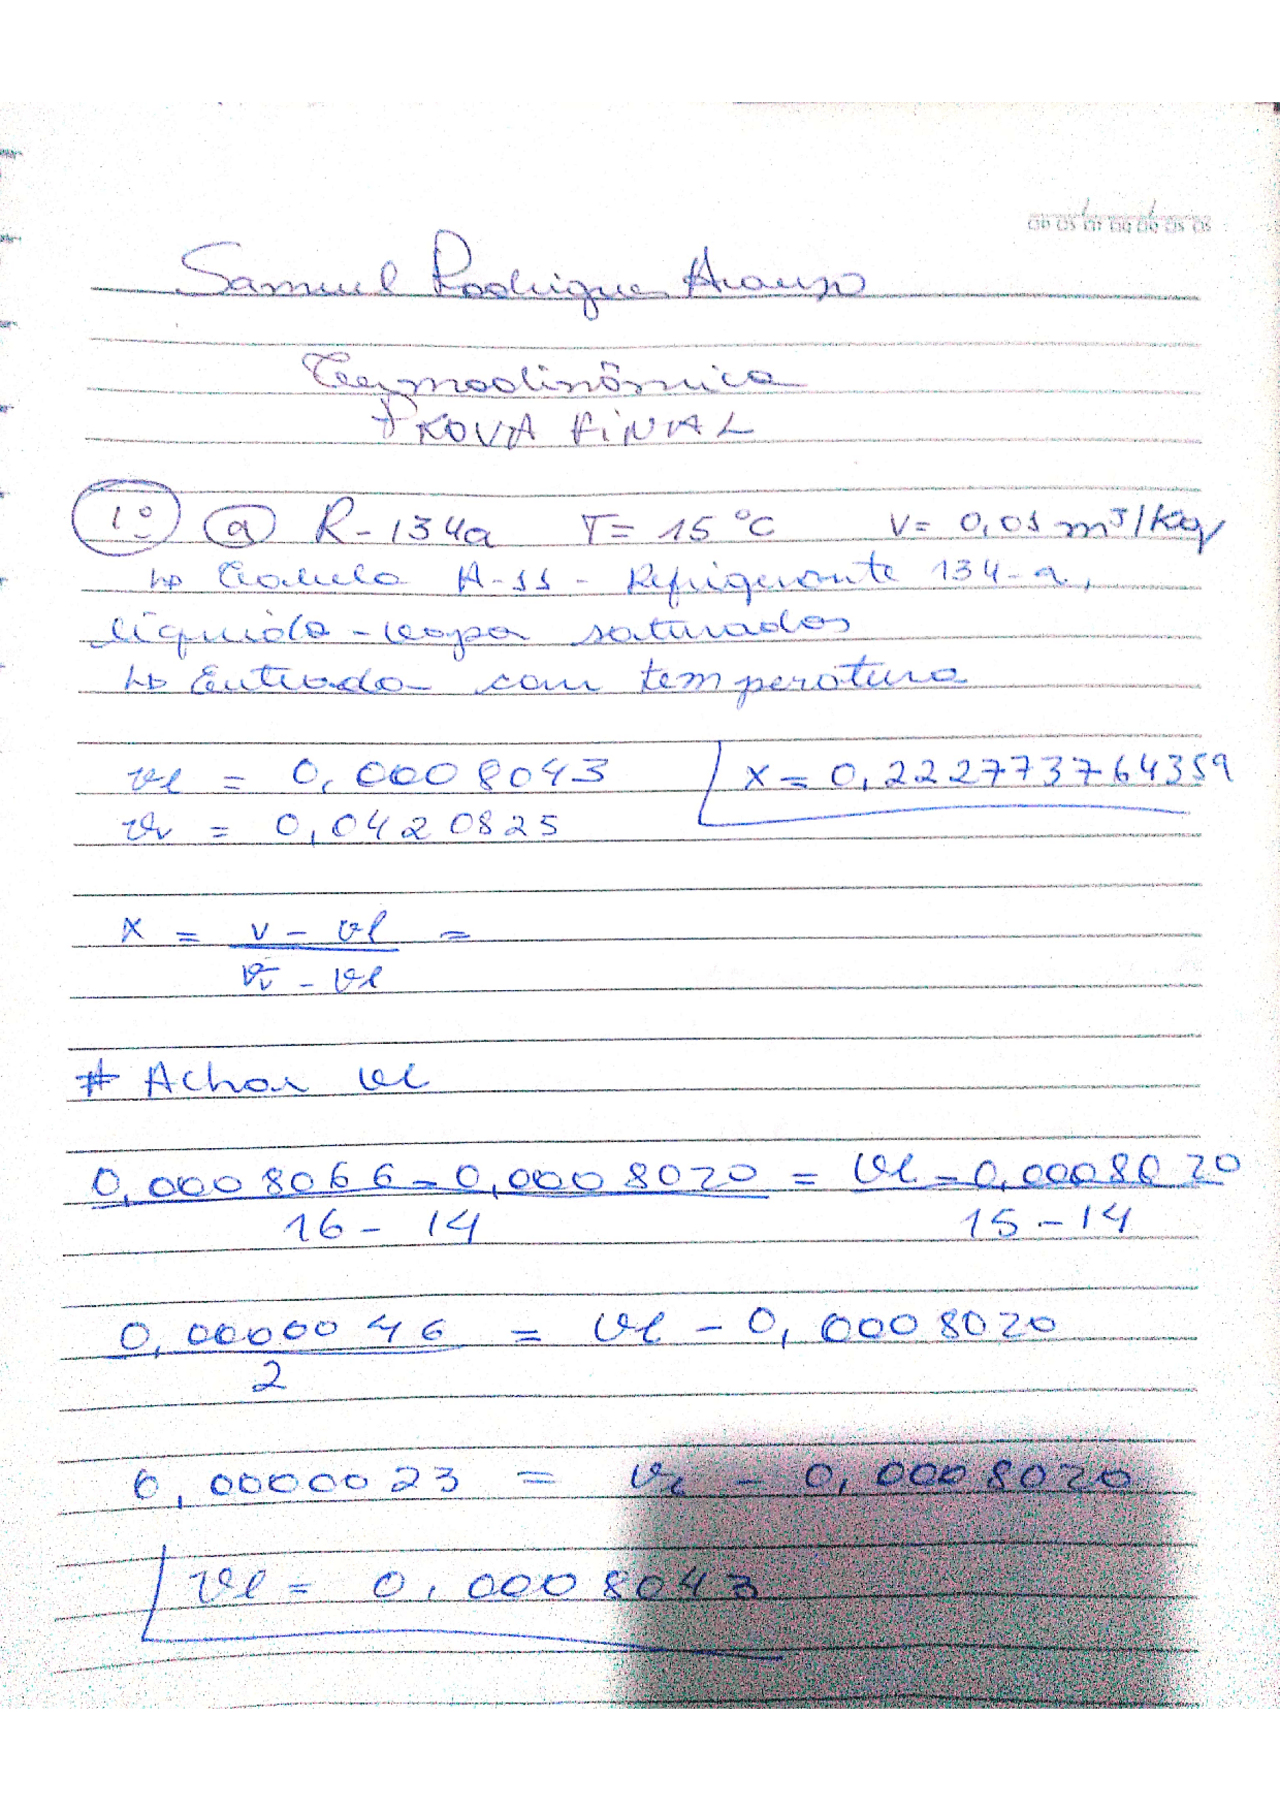 Samuel Rodrigues Araujo
Termodinâmica
PROVA FINAL
1º a R-134a T= 15 °C v= 0,01 m³/Kg
↳ Tabela A-11 - Refrigerante 134-a,
líquido-vapor saturados
↳ Entrada com temperatura
vl = 0,0008043 x = 0,222773764359
vv = 0,0420825
x = v - vl =
vv - vl
# Achar vl
0,0008066 - 0,0008020 = vl - 0,0008020
16 - 14 15 - 14
0,0000046 = vl - 0,0008020
2
0,0000023 = vl - 0,0008020
vl = 0,0008043